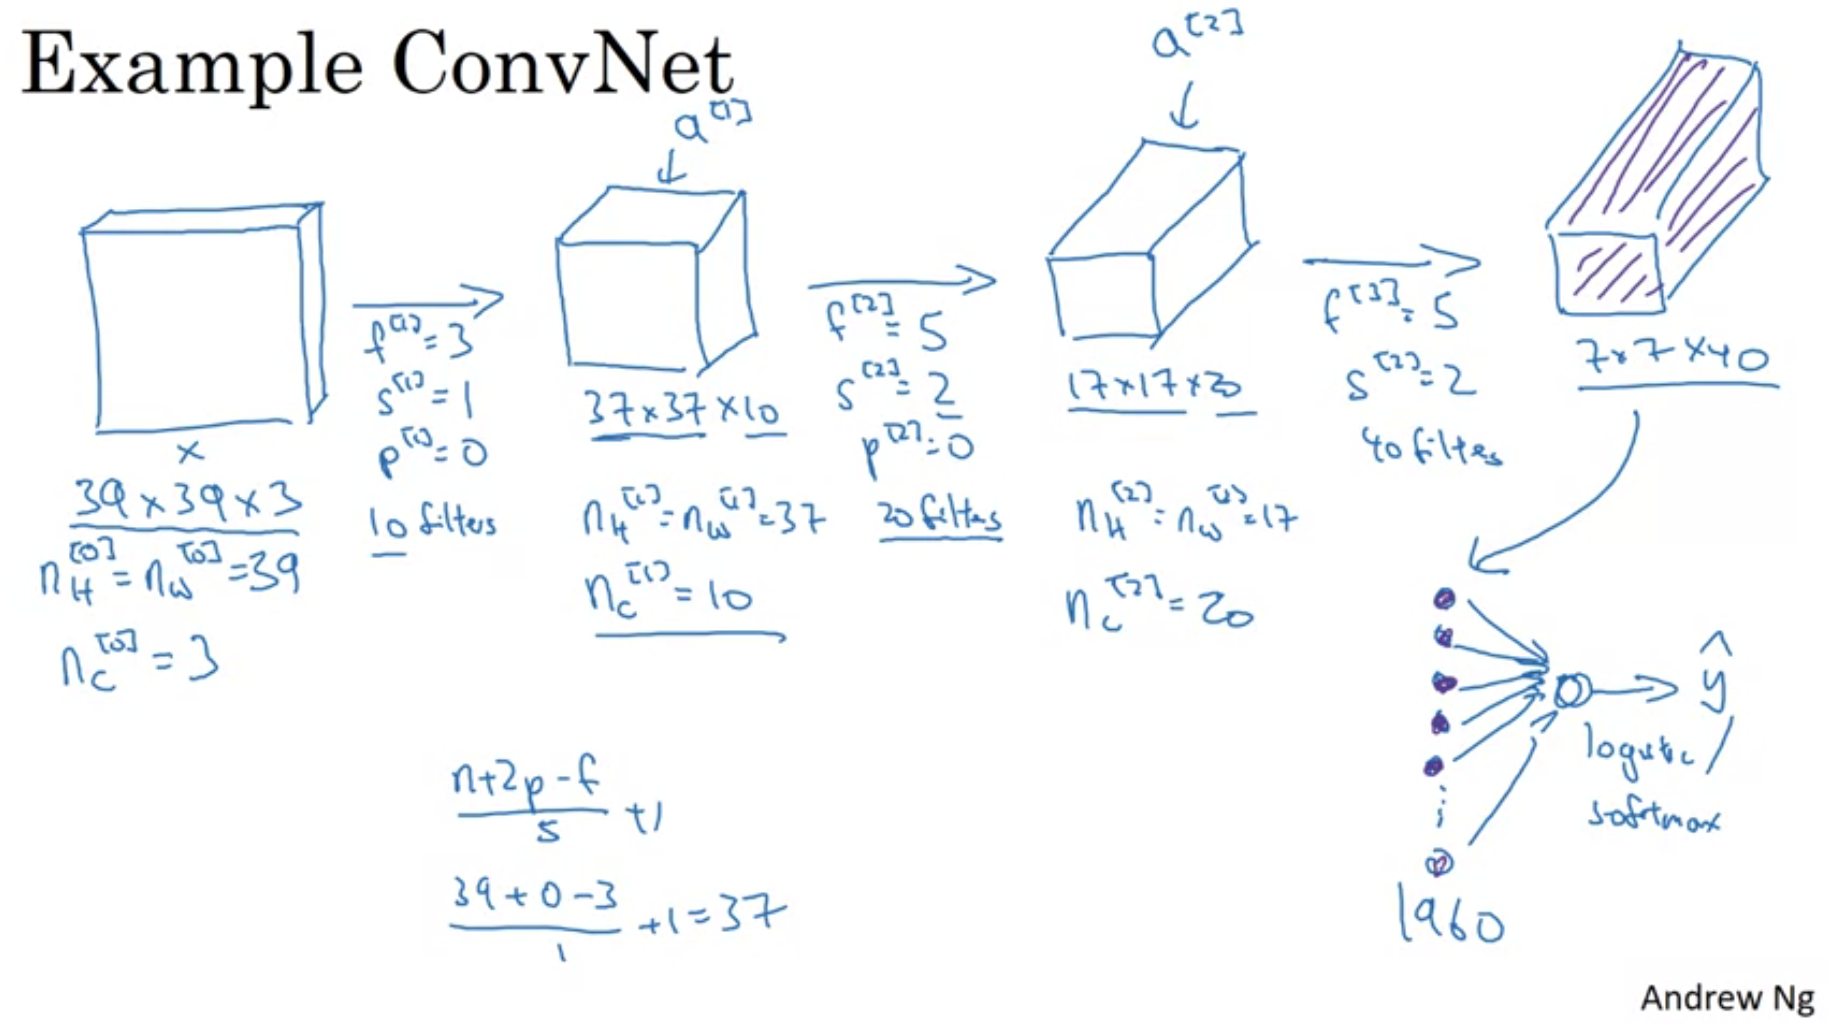 Example ConvNet
a^[1]
a^[2]
x
39 x 39 x 3
n_H^[0] = n_W^[0] = 39
n_C^[0] = 3
f^[1] = 3
s^[1] = 1
p^[1] = 0
10 filters
37 x 37 x 10
n_H^[1] = n_W^[1] = 37
n_C^[1] = 10
f^[2] = 5
s^[2] = 2
p^[2] = 0
20 filters
17 x 17 x 20
n_H^[2] = n_W^[2] = 17
n_C^[2] = 20
f^[3] = 5
s^[2] = 2
40 filters
7 x 7 x 40
n+2p-f
s
+1
39 + 0 - 3
1
+1 = 37
ŷ
logistic /
softmax
1960
Andrew Ng